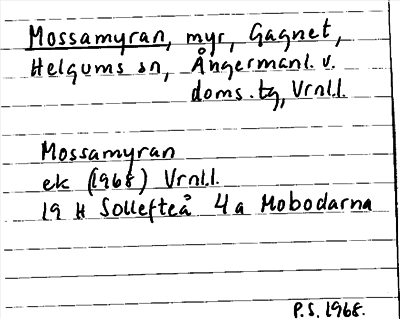 Mossamyran, myr, Gagnet,
Helgums sn, Ångermanl. v.
doms.tg, Vrnl.l.
Mossamyran
ek (1968) Vrnl.l.
19 H Sollefteå 4a Mobodarna
P.S. 1968.